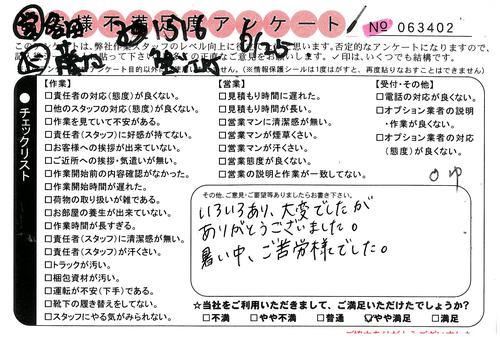 お客様不満足度アンケート
No 063402
6/25
【作業】
□責任者の対応(態度)が良くない。
□他のスタッフの対応(態度)が良くない。
□作業を見ていて不安がある。
□責任者(スタッフ)に好感が持てない。
□お客様への挨拶が出来ていない。
□ご近所への挨拶・気遣いが無い。
□作業開始前の内容確認がなかった。
□作業開始時間が遅れた。
□荷物の取り扱いが雑である。
□お部屋の養生が出来ていない。
□作業時間が長すぎる。
□責任者(スタッフ)に清潔感が無い。
□責任者(スタッフ)が汗くさい。
□トラックが汚い。
□梱包資材が汚い。
□運転が不安(下手)である。
□靴下の履き替えをしてない。
□スタッフにやる気がみられない。
【営業】
□見積もり時間に遅れた。
□見積もり時間が長い。
□営業マンに清潔感が無い。
□営業マンが煙草くさい。
□営業マンが汗くさい。
□営業態度が良くない。
□営業の説明と作業が一致してない。
【受付・その他】
□電話の対応が良くない。
□オプション業者の説明
・作業が良くない。
□オプション業者の対応
(態度)が良くない。
●チェックリスト
その他、ご意見・ご要望等ありましたらお書き下さい。
いろいろあり、大変でしたが
ありがとうございました。
暑い中、ご苦労様でした。
☆当社をご利用いただきまして、ご満足いただけたでしょうか？
□不満 □やや不満 □普通 ☑やや満足 □満足